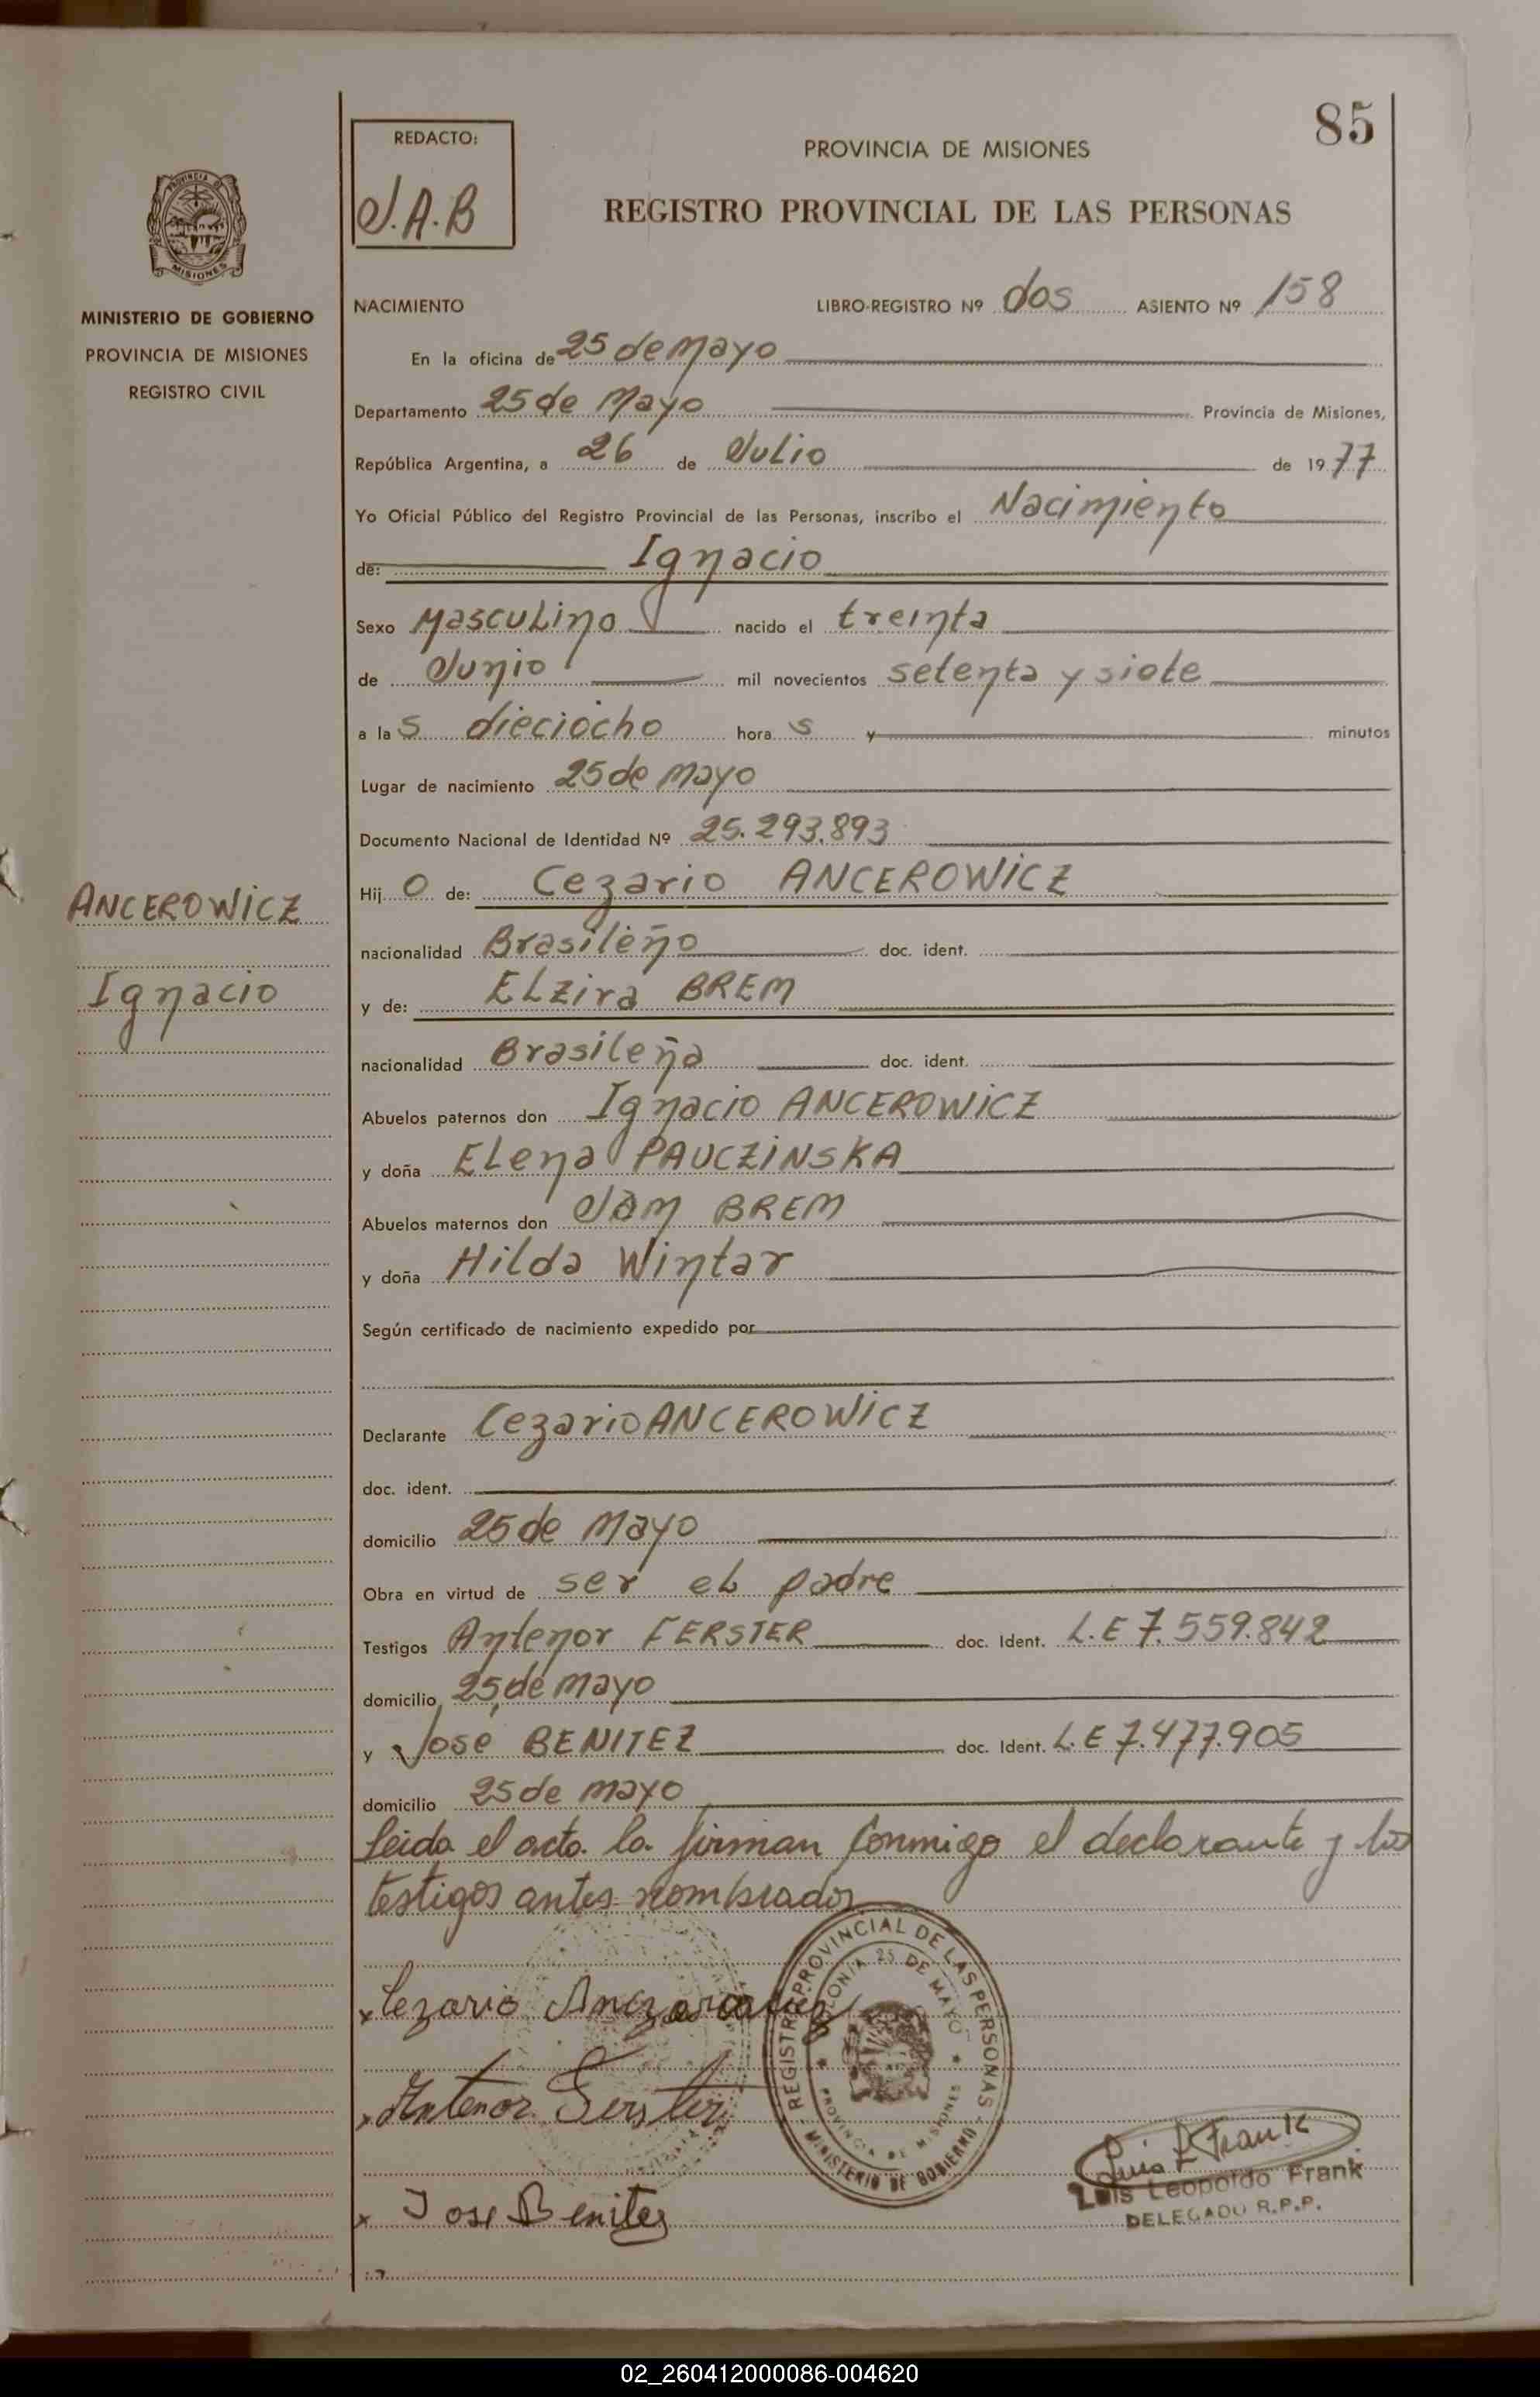 85
REDACTO:
J.A.B
PROVINCIA DE MISIONES
REGISTRO PROVINCIAL DE LAS PERSONAS
MISIONES
MINISTERIO DE GOBIERNO
PROVINCIA DE MISIONES
REGISTRO CIVIL
NACIMIENTO LIBRO-REGISTRO Nº dos ASIENTO Nº 158
En la oficina de 25 de Mayo
Departamento 25 de Mayo Provincia de Misiones,
República Argentina, a 26 de Julio de 1977
Yo Oficial Público del Registro Provincial de las Personas, inscribo el Nacimiento
de: Ignacio
Sexo Masculino nacido el treinta
de Junio mil novecientos setenta y siete
a las dieciocho horas y minutos
Lugar de nacimiento 25 de Mayo
Documento Nacional de Identidad Nº 25.293.893
ANCEROWICZ
Ignacio
Hijo de: Cezario ANCEROWICZ
nacionalidad Brasileño doc. ident.
y de: ELzira BREM
nacionalidad Brasileña doc. ident.
Abuelos paternos don Ignacio ANCEROWICZ
y doña ELena PAUCZINSKA
Abuelos maternos don Jam BREM
y doña Hilda Wintar
Según certificado de nacimiento expedido por
Declarante Cezario ANCEROWICZ
doc. ident.
domicilio 25 de Mayo
Obra en virtud de ser el padre
Testigos Antenor FERSTER doc. Ident. L.E 7.559.842
domicilio 25 de Mayo
y José BENITEZ doc. Ident. L.E 7.477.905
domicilio 25 de mayo
Leida el acta la firman conmigo el declarante y los
testigos antes nombrados
REGISTRO PROVINCIAL DE LAS PERSONAS
COLONIA 25 DE MAYO
PROVINCIA DE MISIONES
MINISTERIO DE GOBIERNO
x Cezario
x Antenor Ferster
x Jose Benitez
Luis L Frank
Luis Leopoldo Frank
DELEGADO R.P.P.
02_260412000086-004620